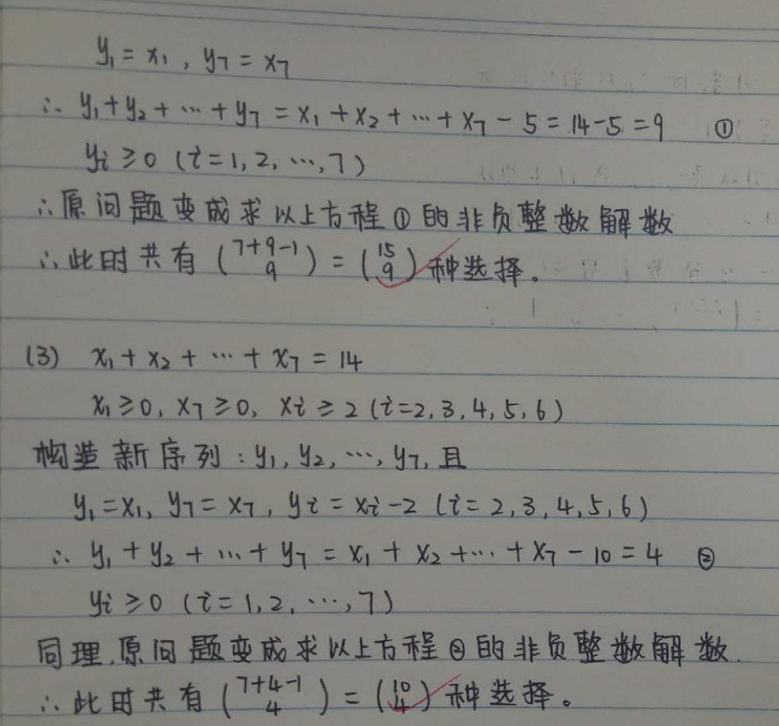 y₁ = x₁ , y₇ = x₇
∴ y₁ + y₂ + ⋯ + y₇ = x₁ + x₂ + ⋯ + x₇ − 5 = 14 − 5 = 9 ①
yi ≥ 0 (i = 1, 2, ⋯, 7)
∴ 原问题变成求以上方程①的非负整数解数
∴ 此时共有 (7+9−1 9) = (15 9) 种选择。
(3) x₁ + x₂ + ⋯ + x₇ = 14
x₁ ≥ 0, x₇ ≥ 0, xi ≥ 2 (i = 2, 3, 4, 5, 6)
构造新序列: y₁, y₂, ⋯, y₇, 且
y₁ = x₁, y₇ = x₇, yi = xi − 2 (i = 2, 3, 4, 5, 6)
∴ y₁ + y₂ + ⋯ + y₇ = x₁ + x₂ + ⋯ + x₇ − 10 = 4 ②
yi ≥ 0 (i = 1, 2, ⋯, 7)
同理,原问题变成求以上方程②的非负整数解数.
∴ 此时共有 (7+4−1 4) = (10 4) 种选择。